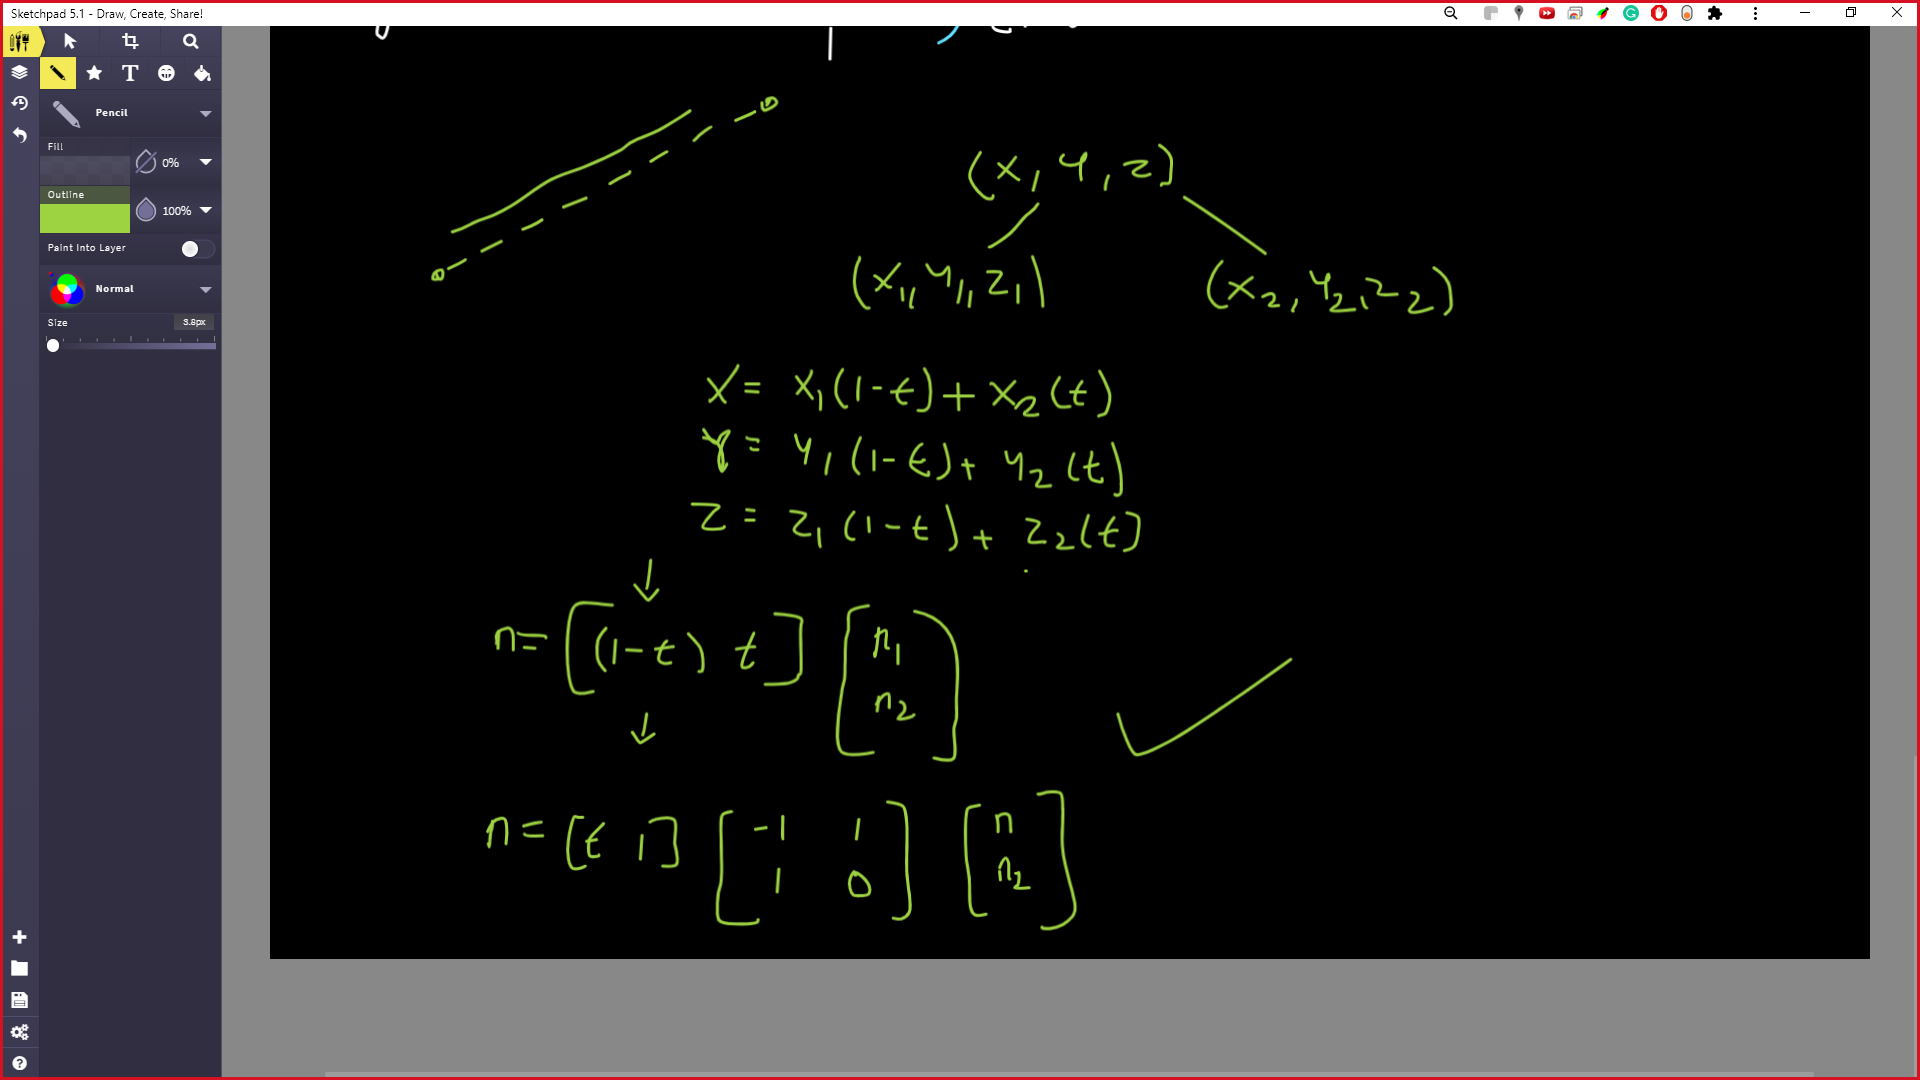 Sketchpad 5.1 - Draw, Create, Share!
Pencil
Fill
0%
Outline
100%
Paint Into Layer
Normal
Size
3.8px
(x, y, z)
(x1, y1, z1)
(x2, y2, z2)
x = x1(1-t) + x2(t)
y = y1(1-t) + y2(t)
z = z1(1-t) + z2(t)
n = [(1-t) t] [n1 n2]
n = [t 1] [-1 1 1 0] [n n2]